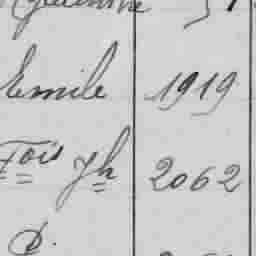 Emile 1919
Fois Jh 2062